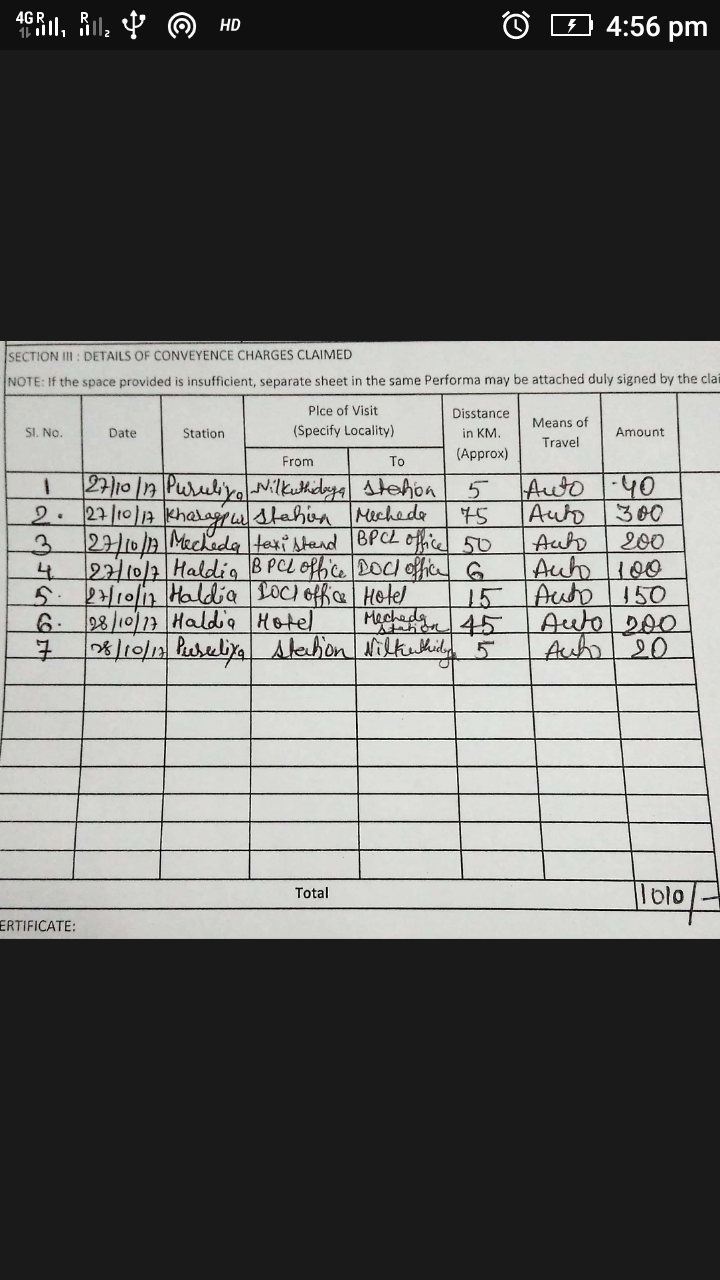 4G R 1 R 2 HD 4:56 pm
SECTION III : DETAILS OF CONVEYENCE CHARGES CLAIMED
NOTE: If the space provided is insufficient, separate sheet in the same Performa may be attached duly signed by the clai
Sl. No. Date Station Plce of Visit (Specify Locality) Disstance in KM. (Approx) Means of Travel Amount
From To
1 27/10/17 Puruliya Nilkuthidaga Station 5 Auto 40
2. 27/10/17 Kharagpur Station Mecheda 75 Auto 300
3 27/10/17 Mecheda taxi stand BPCL office 50 Auto 200
4 27/10/17 Haldia BPCL office IOCl office 6 Auto 100
5. 27/10/17 Haldia IOCl office Hotel 15 Auto 150
6. 28/10/17 Haldia Hotel Mecheda station 45 Auto 200
7 28/10/17 Puruliya Station 5 Auto 20
Total 1010/-
ERTIFICATE: